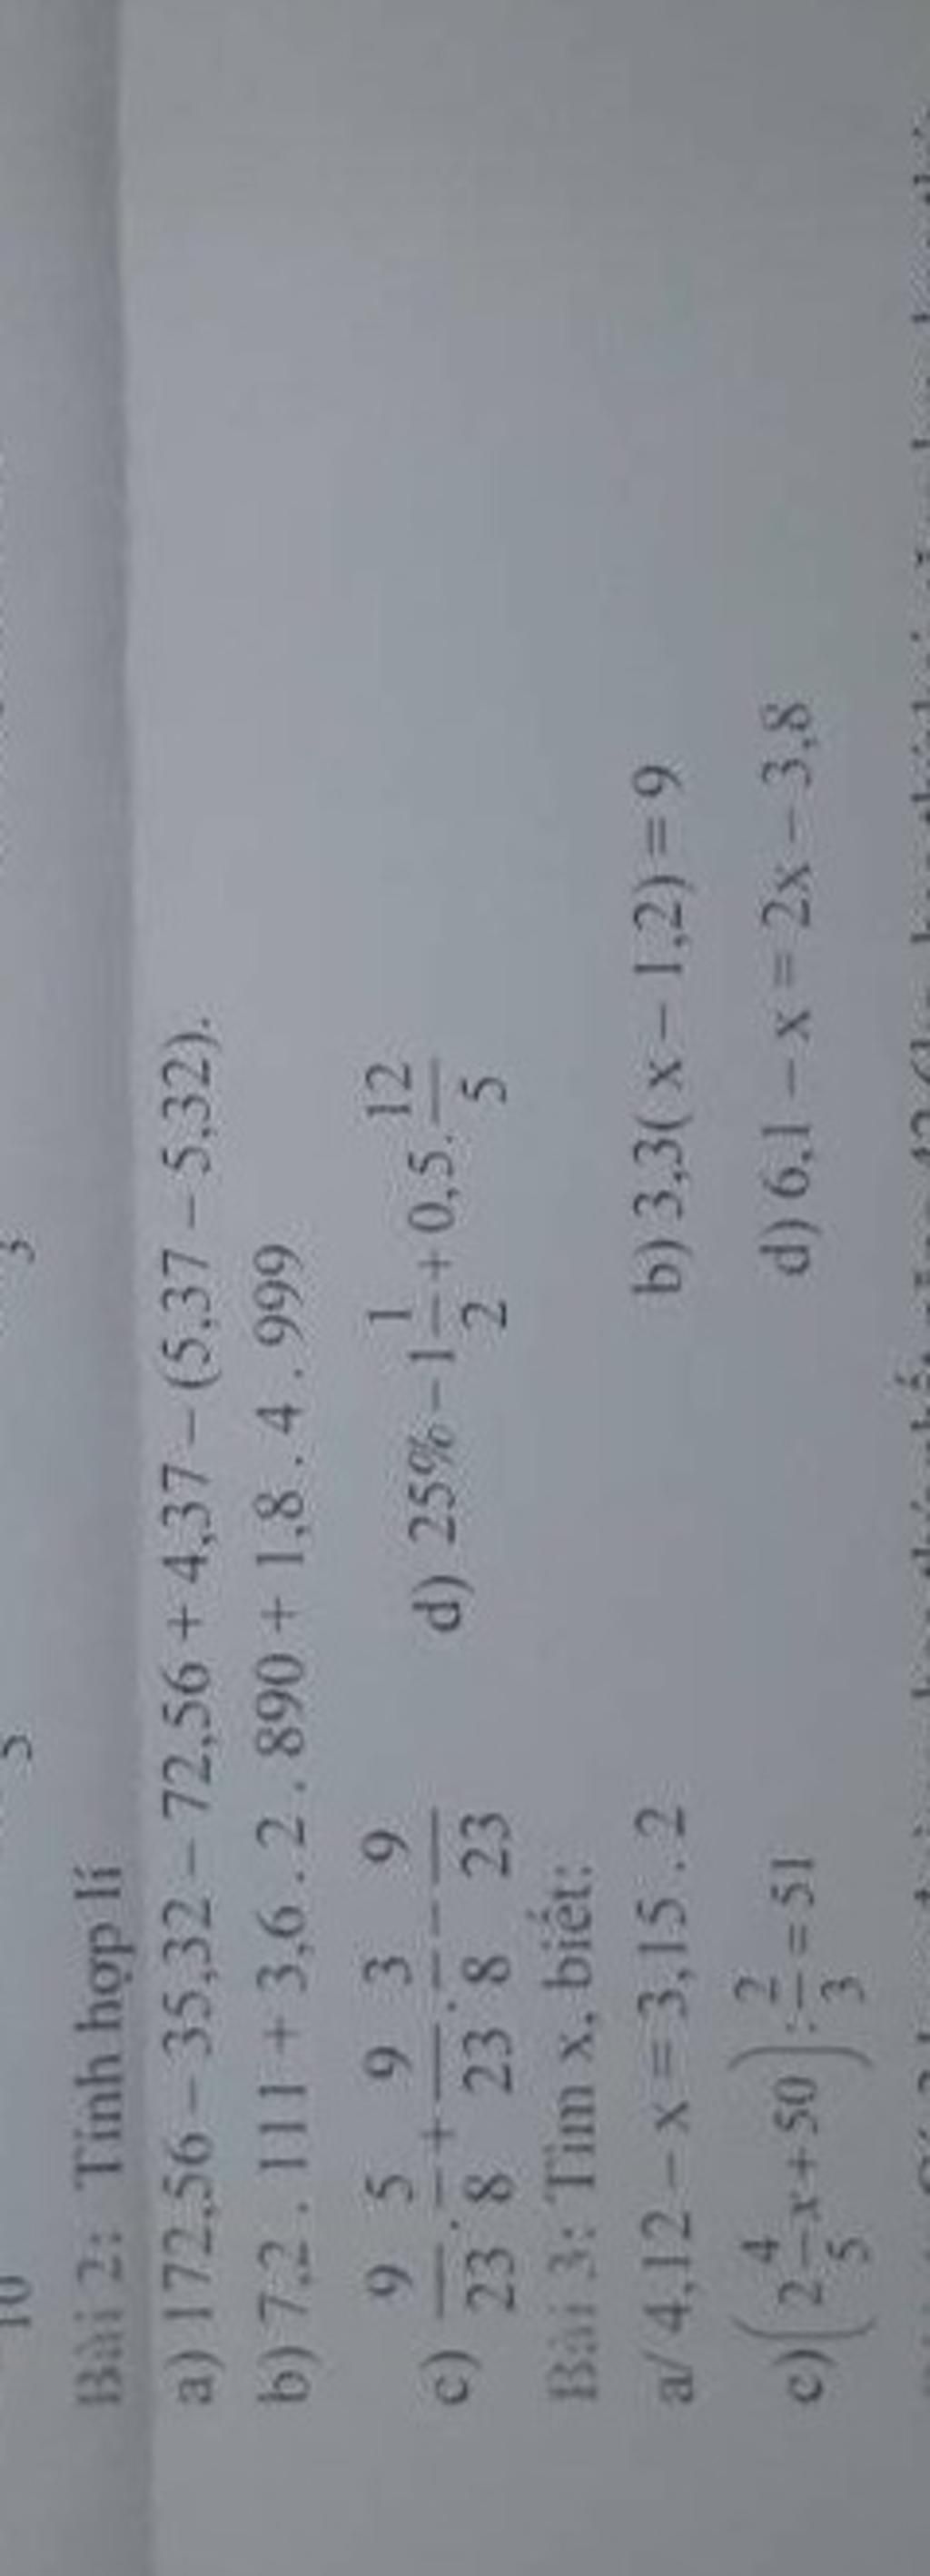 10 5 3
Bài 2: Tính hợp lí
a) 172,56 – 35,32 – 72,56 + 4,37 – (5,37 – 5,32).
b) 7,2 . 111 + 3,6 . 2 . 890 + 1,8 . 4 . 999
c) 9/23 . 5/8 + 9/23 . 3/8 – 9/23 d) 25% – 1 1/2 + 0,5 . 12/5
Bài 3: Tìm x, biết:
a/ 4,12 – x = 3,15 . 2 b) 3,3( x – 1,2) = 9
c) (2 4/5 x + 50) : 2/3 = 51 d) 6,1 – x = 2x – 3,8